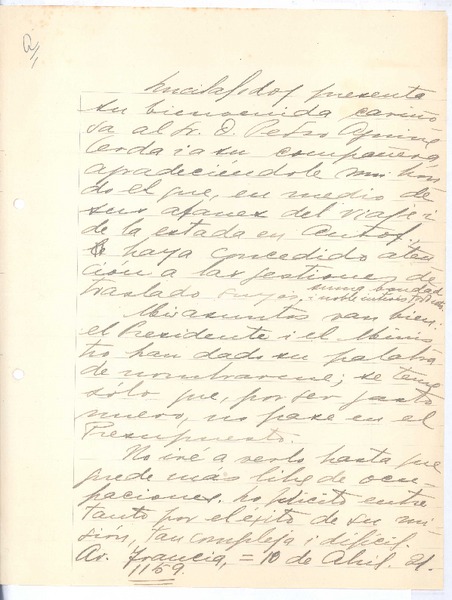 a/1
Lucila Godoy presenta
su bienvenida cariño
sa al Sr. D Pedro Aguirre
Cerda i a su compañera
agradeciéndole mui hon
do el que, en medio de
sus afanes del viaje i
de la estada en
haya concedido aten
ción a las gestiones de
traslado suyas, suma bondad
i noble interés
Mis asuntos van bien:
el Presidente i el Minis
tro han dado su palabra
de nombrarme; se teme
sólo que, por ser gasto
nuevo, no pase en el
Presupuesto.
No iré a verlo hasta que
quede más libre de ocu-
paciones. Lo felicito entre
tanto por el éxito de su mi
sión, tan compleja i difícil.
Av. Francia, = 10 de Abril, 21.
1159